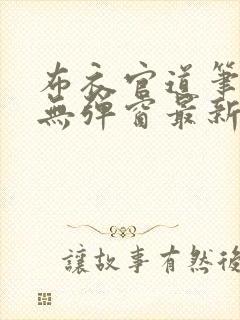 布衣官道筆
無彈窗最新
讓故事有然後